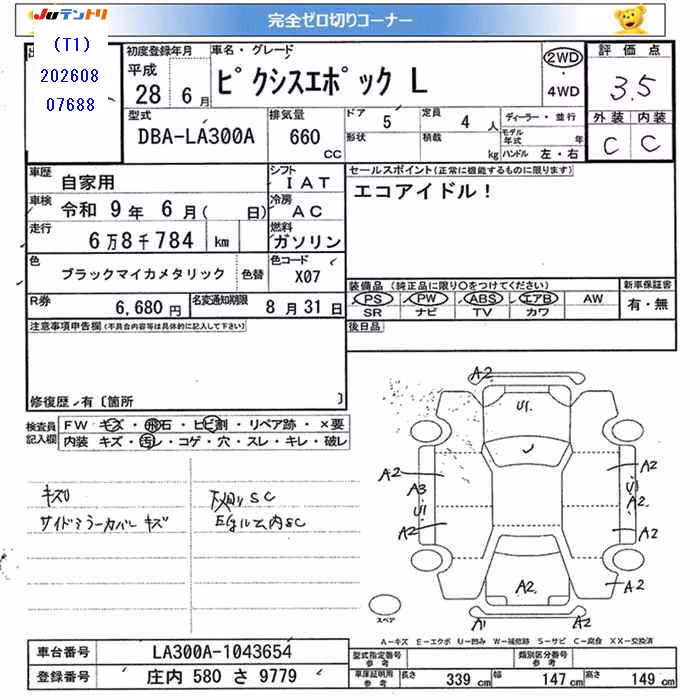 JUテントリ
完全ゼロ切りコーナー
(T1)
202608
07688
初度登録年月
平成
28年 6月
車名・グレード
ピクシスエポック L
2WD
・
4WD
評価点
3.5
外装 内装
C C
型式
DBA-LA300A
排気量
660
CC
ドア 5
形状
定員 4 人
積載 kg
ディーラー・並行
モデル年式 年
ハンドル 左・右
車歴 自家用
車検 令和 9年 6月( 日)
走行 6万8千784 km
色 ブラックマイカメタリック 色替
シフト IAT
冷房 AC
燃料 ガソリン
色コード X07
R券 6,680円
名変通知期限 8月31日
セールスポイント(正常に機能するものに限ります)
エコアイドル!
装備品(純正品に限り○をつけてください)
PS PW ABS エアB AW
SR ナビ TV カワ
新車保証書
有・無
後日品
注意事項申告欄(不具合内容等は具体的に記入して下さい)
修復歴・有〔箇所 〕
検査員記入欄
FW キズ・飛石・ヒビ割・リペア跡・×要
内装 キズ・汚レ・コゲ・穴・スレ・キレ・破レ
キズ0
サイドミラーカバー キズ
下廻りSC
E/gルーム内SC
A2
U1
A2
A3
U1
A2
A2
U1
A2
A2
A2
A2
A1
A2
スペア
A−キズ E−エクボ U−凹み W−補修跡 S−サビ C−腐食 XX−交換済
車台番号 LA300A-1043654
登録番号 庄内 580 さ 9779
型式指定番号 参考
類別区分番号 参考
車庫証明用 参考
長さ 339 cm
幅 147 cm
高さ 149 cm